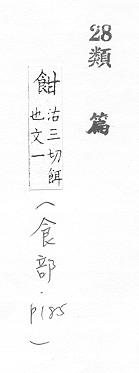 28
類篇
沽三切餌
也文一
（食部．p185）